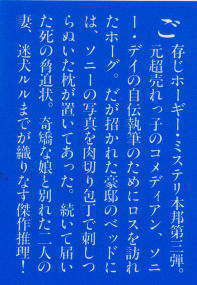 ご存じホーギー・ミステリ本邦第三弾。
元超売れっ子のコメディアン、ソニ
ー・デイの自伝執筆のためにロスを訪れ
たホーグ。だが招かれた豪邸のベッドに
は、ソニーの写真を肉切り包丁で刺しつ
らぬいた枕が置いてあった。続いて届い
た死の脅迫状。奇矯な娘と別れた二人の
妻、迷犬ルルまでが織りなす傑作推理!